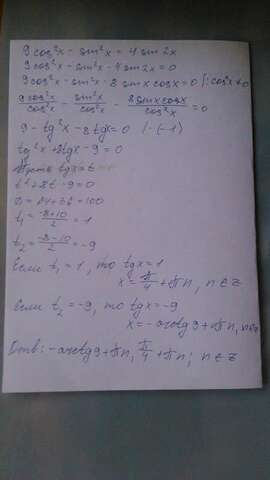 9cos²x - sin²x = 4sin2x
9cos²x - sin²x - 4sin2x = 0
9cos²x - sin²x - 8sinxcosx = 0 |:cos²x≠0
9cos²x/cos²x - sin²x/cos²x - 8sinxcosx/cos²x = 0
9 - tg²x - 8tgx = 0 |·(-1)
tg²x + 8tgx - 9 = 0
Пусть tgx = t
t² + 8t - 9 = 0
D = 64 + 36 = 100
t₁ = (-8+10)/2 = 1
t₂ = (-8-10)/2 = -9
Если t₁ = 1, то tgx = 1
x = π/4 + πn, n∈Z
Если t₂ = -9, то tgx = -9
x = -arctg9 + πn, n∈Z
Отв: -arctg9 + πn, π/4 + πn; n∈Z